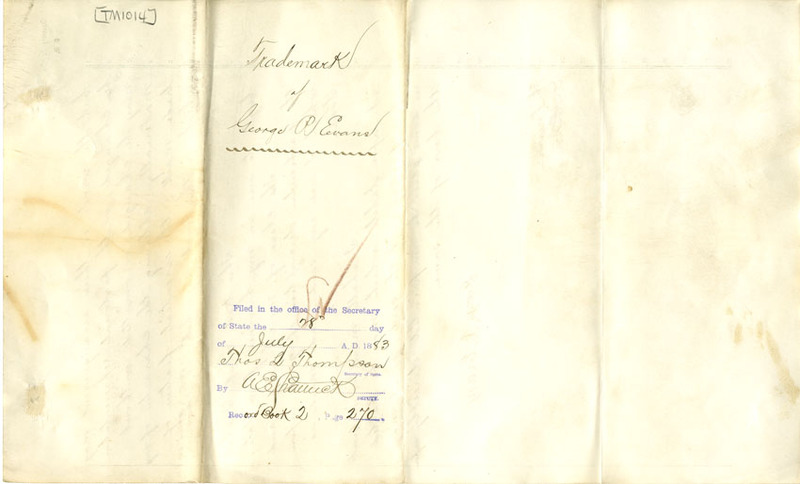 [TM1014]
Trademark
of
George P. Evans
Filed in the office of the Secretary
of State the 28 day
of July A. D. 1883
Thos L Thompson
Secretary of State.
By A E
DEPUTY.
Record Book 2 Page 270